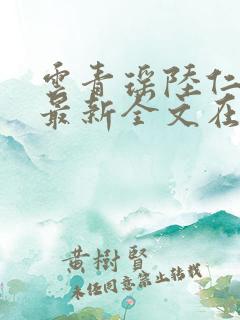 云青瑶陆仁
最新全文在
黄樹賢
未经同意禁止转载